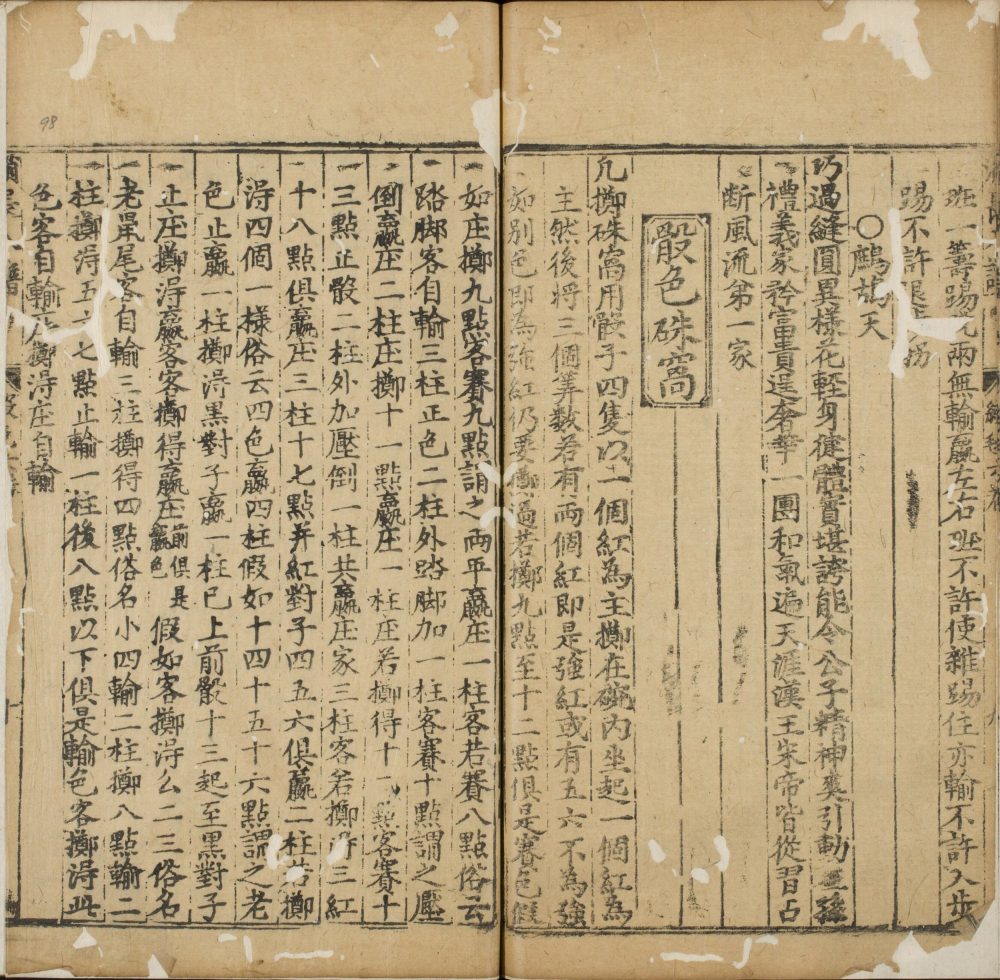 班一籌踢兩無輸贏左右班不許使雜踢住亦輸不許入步
踢不許退
○鷓鴣天
巧過縫圓異樣花輕身健體實堪誇能令公子精神爽引動王孫
禮義家矜富貴逞奢華一團和氣遍天涯漢王宋帝皆從習占
斷風流第一家
骰色硃窩
凡擲硃窩用骰子四隻以一個紅為主擲在碗內坐起一個紅為
主然後將三個筭數若有兩個紅即是強紅或有五六不為強
如別色即為強紅仍要擲過若擲九點至十二點俱是賽色假
如庄擲九點客賽九點謂之両平贏庄一柱客若賽八點俗云
踏脚客自輸三柱正色二柱外踏脚加一柱客賽十點謂之壓
倒贏庄二柱庄擲十一點贏庄一柱庄若擲得十點客賽十
三點止骰二柱外加壓倒一柱共贏庄家三柱客若擲淂三紅
十八點俱贏庄三柱十七點并紅對子四五六俱贏二柱若擲
淂四個一樣俗云四色贏四柱假如十四十五十六點謂之老
色止贏一柱擲淂黑對子贏一柱已上前骰十三起至黑對子
止庄擲淂贏客客擲得贏庄前俱是贏色假如客擲淂么二三俗名
老鼠尾客自輸三柱擲得四點俗名小四輸二柱擲八點輸二
柱擲淂五六七點止輸一柱後八點以下俱是輸色客擲淂此
色客自輸庄擲淂庄自輸
98